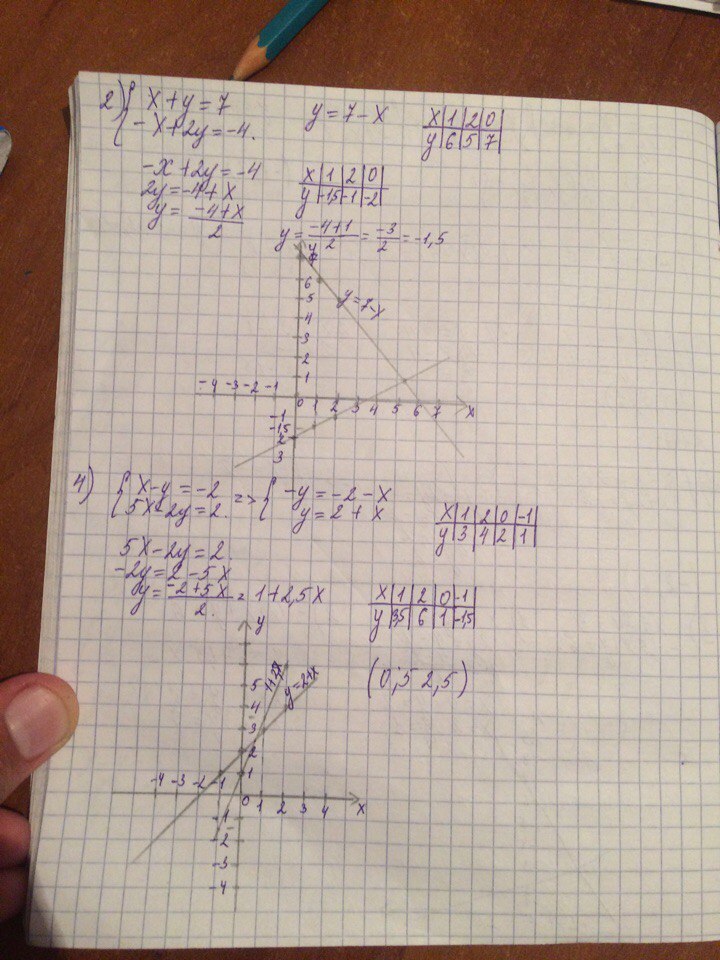 2) { x+y=7    y=7-x    x|1|2|0
-x+2y=-4.    y|6|5|7
-x+2y=-4    x|1|2|0
2y=-4+x    y|-1,5|-1|-2
y= (-4+x)/2
y= (-4+1)/2 = -3/2 = -1,5
y
7
6
5    y=7-x
4
3
2
1
-4 -3 -2 -1
0 1 2 3 4 5 6 7 x
-1
-1,5
2
3
4) { x-y=-2 => { -y=-2-x    x|1|2|0|-1
5x-2y=2.    y=2+x    y|3|4|2|1
5x-2y=2.
-2y=2-5x
y= (-2+5x)/2. = 1+2,5x    x|1|2|0|-1
y|3,5|6|1|-1,5
y
(0,5 2,5)
5    y=2+x
4
3
2
1
-4 -3 -2 -1
0 1 2 3 4 x
-1
-2
-3
-4